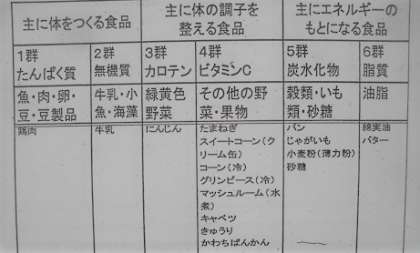 主に体をつくる食品
主に体の調子を
整える食品
主にエネルギーの
もとになる食品
1群
たんぱく質
2群
無機質
3群
カロテン
4群
ビタミンC
5群
炭水化物
6群
脂質
魚・肉・卵・
豆・豆製品
牛乳・小
魚・海藻
緑黄色
野菜
その他の野
菜・果物
穀類・いも
類・砂糖
油脂
鶏肉
牛乳
にんじん
たまねぎ
スイートコーン(ク
リーム缶)
コーン(冷)
グリンピース(冷)
マッシュルーム(水
煮)
キャベツ
きゅうり
かわちばんかん
パン
じゃがいも
小麦粉(薄力粉)
砂糖
綿実油
バター